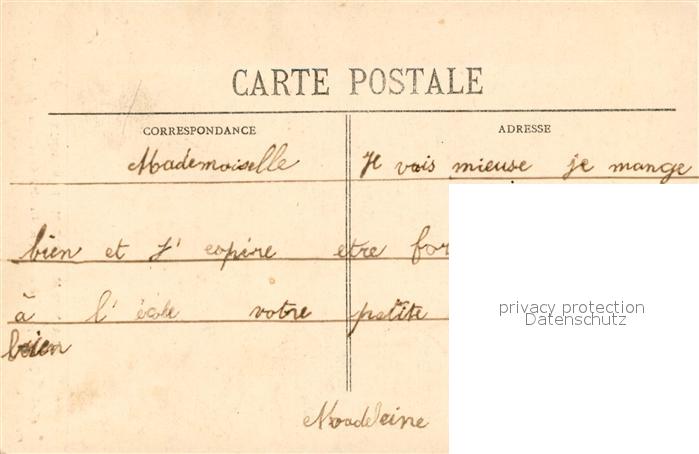 CARTE POSTALE
CORRESPONDANCE ADRESSE
Mademoiselle Je vais mieuse je mange
bien et J' espire etre for
à l' école votre petite
bien
Maadeleine
privacy protection
Datenschutz